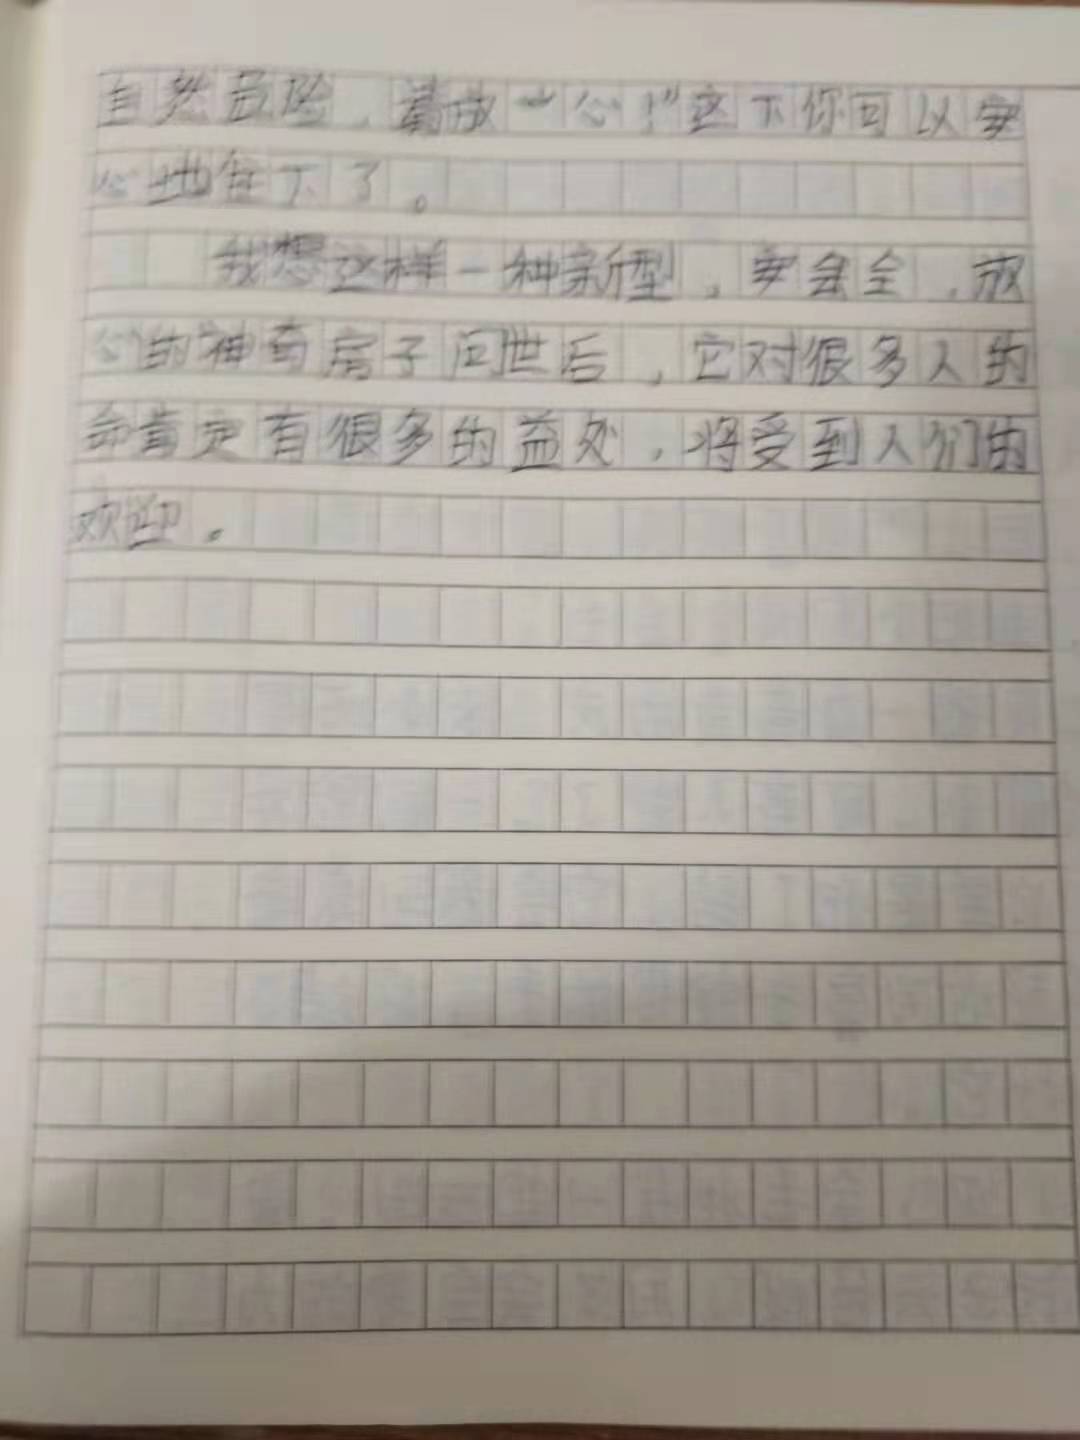 自然危险，请放一心！”这下你可以安
心地住下了。
我想这样一种新型，安会全，放
心的神奇房子问世后，它对很多人的
命肯定有很多的益处，将受到人们的
欢迎。